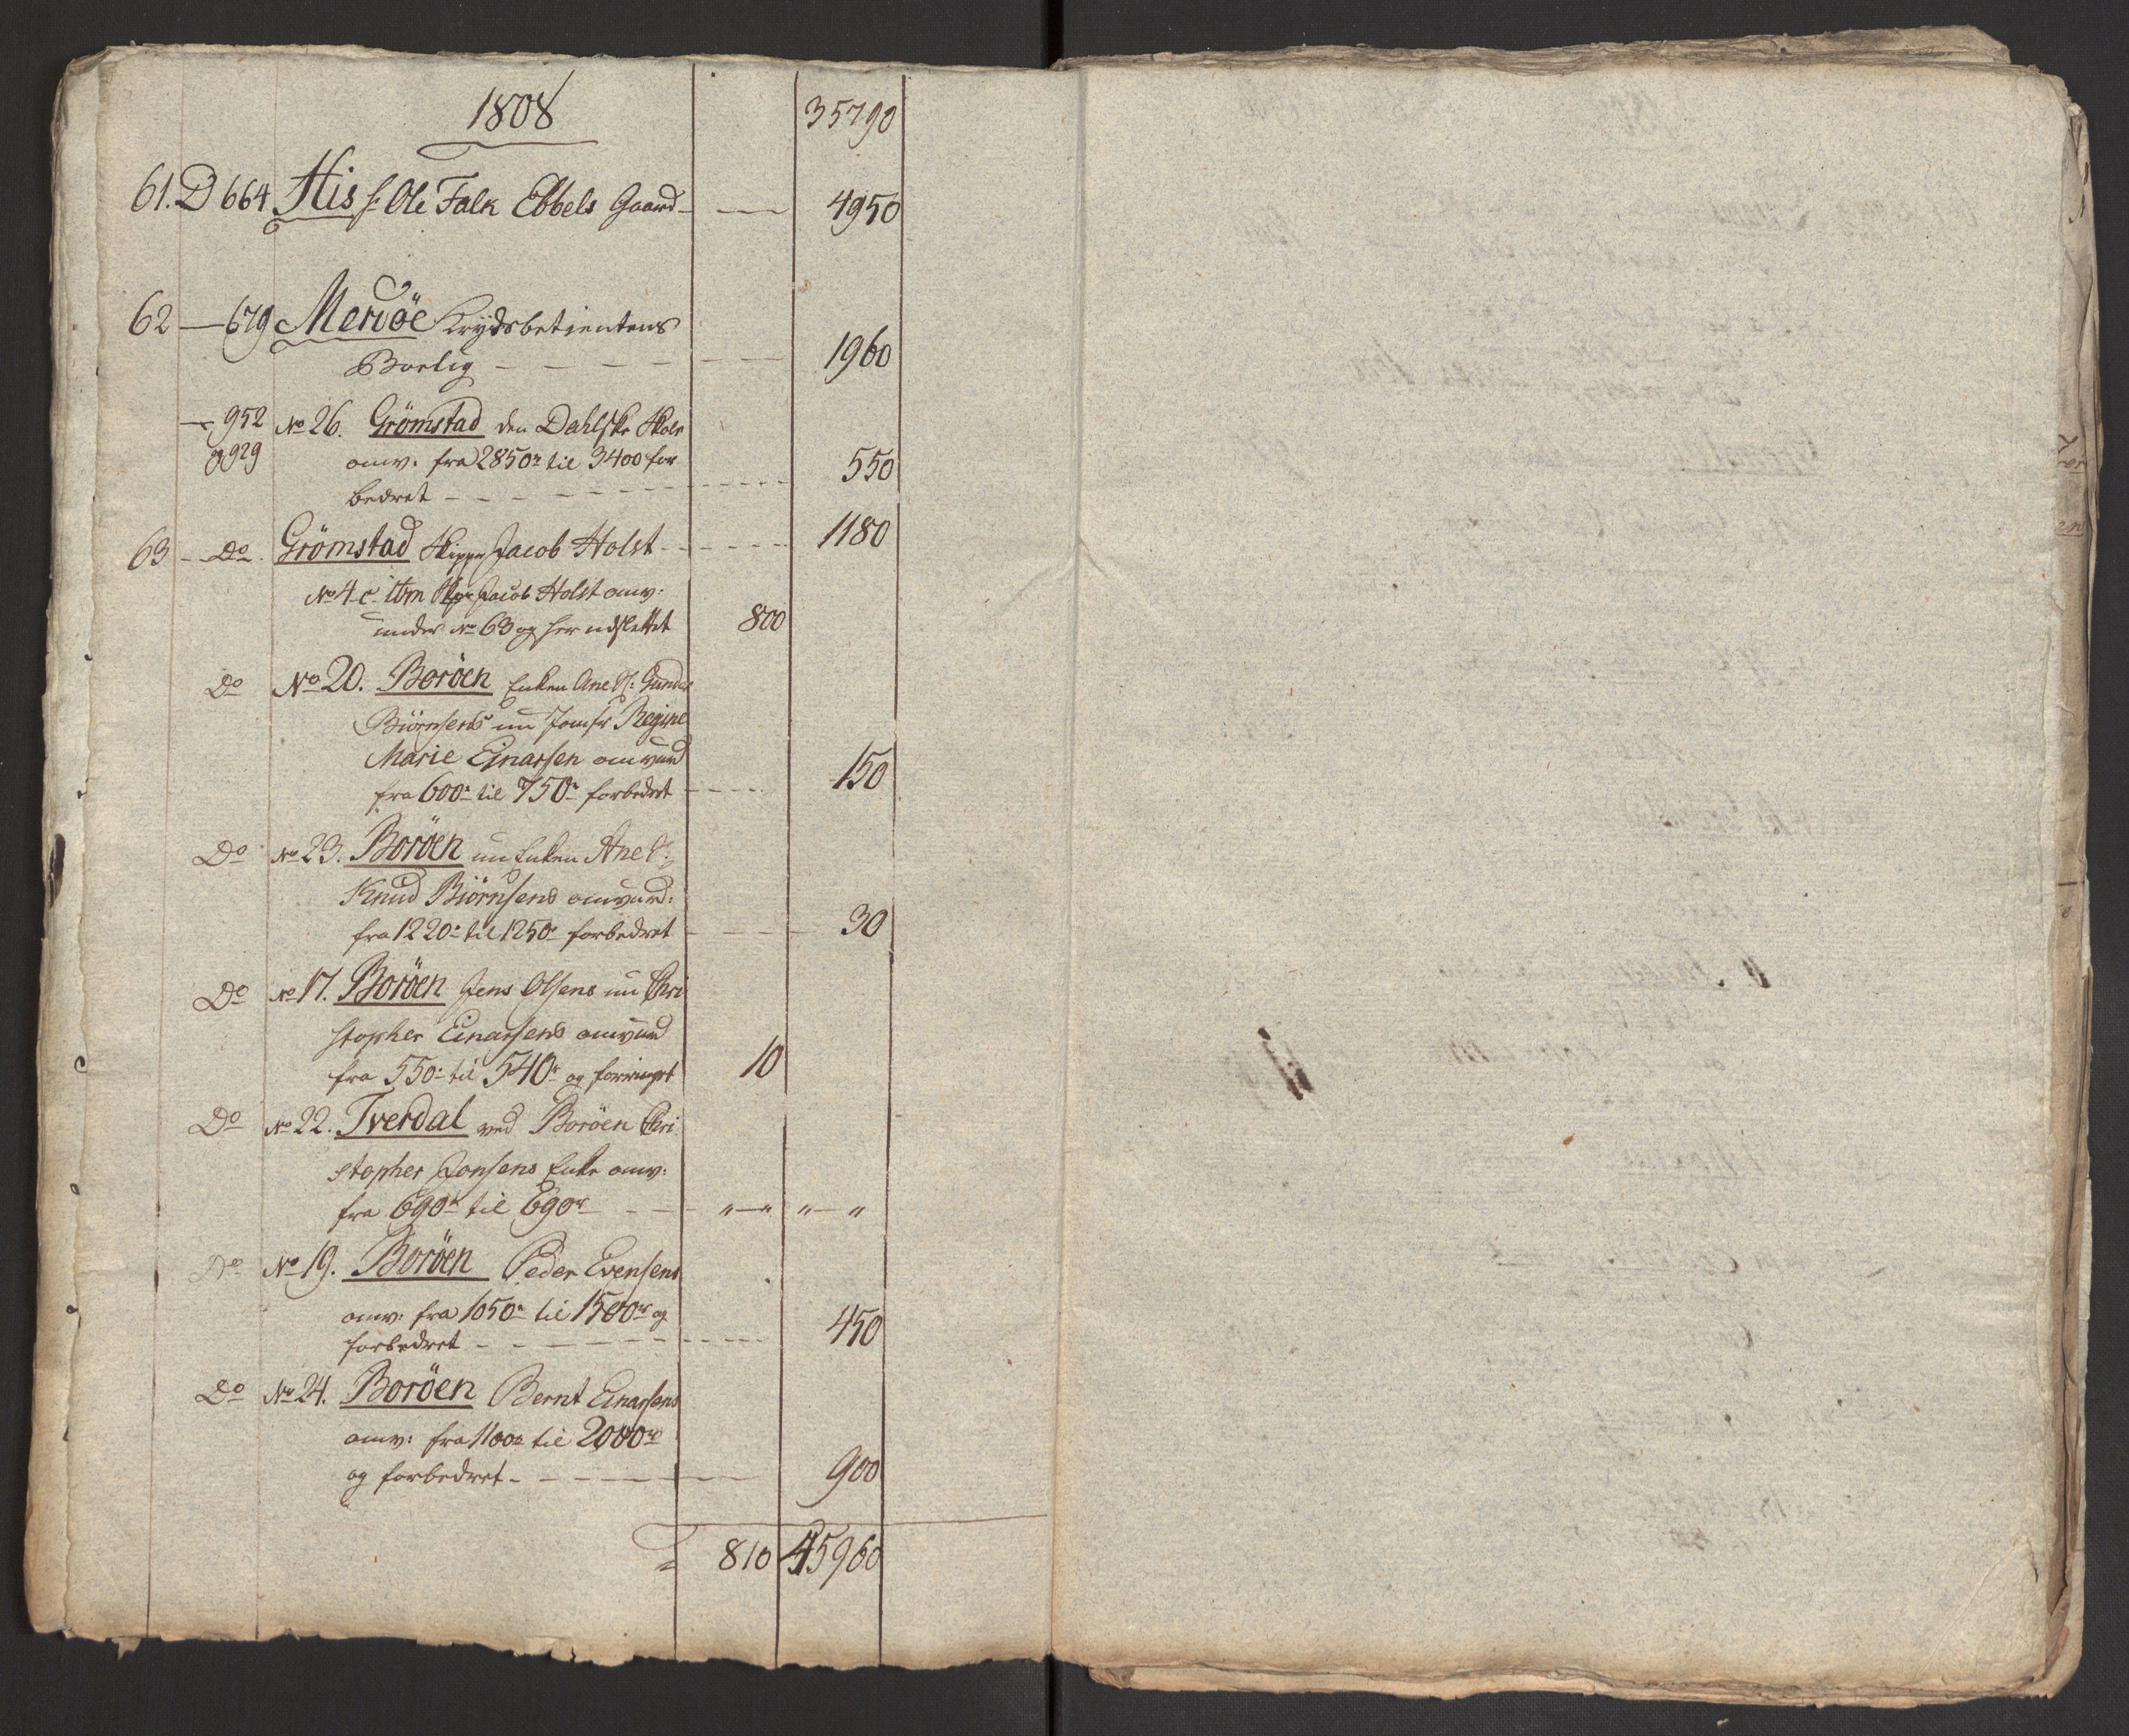 1808
35790
61. D 664 His s: Ole Falk Ebbels Gaard - — 4950
62 — 679 Merdöe Krydsbetientens
Boelig - - - - 1960
— 952 No 26. Grömstad den Dahlske Skole
og 929 omv. fra 2850r til 3400 for
bedret - - - - 550
63 - - Do Grömstad Skipper Jacob Holst - - 1180
No 4 c itm Skpr Jacob Holst omv:
under No 63 og her udslettet 800
Do No 20. Boröen Enken Ane Sl: Gunder
Biörnsens nu Jomfr Regine
Marie Einarsen omvurd
fra 600r til 750r forbedret - - 150
Do No 23. Boröen nu Enken Ane Sl:
Knud Biörnsens omvurd:
fra 1220r til 1250r forbedret - - 30
Do No 17. Boröen Jens Olsens nu Chri
stopher Einarsens omvurd
fra 550r til 540r og forringet 10
Do No 22. Tverdal ved Boröen Chri
stopher Jonsens Enke omv:
fra 690r til 690r - - " — " " — "
Do No 19. Boröen Peder Evensens
omv: fra 1050r til 1500r og
forbedret - - - - 450
Do No 24. Boröen Bernt Einarsens
omv: fra 1100r til 2000r
og forbedret - - - - 900
810 45960